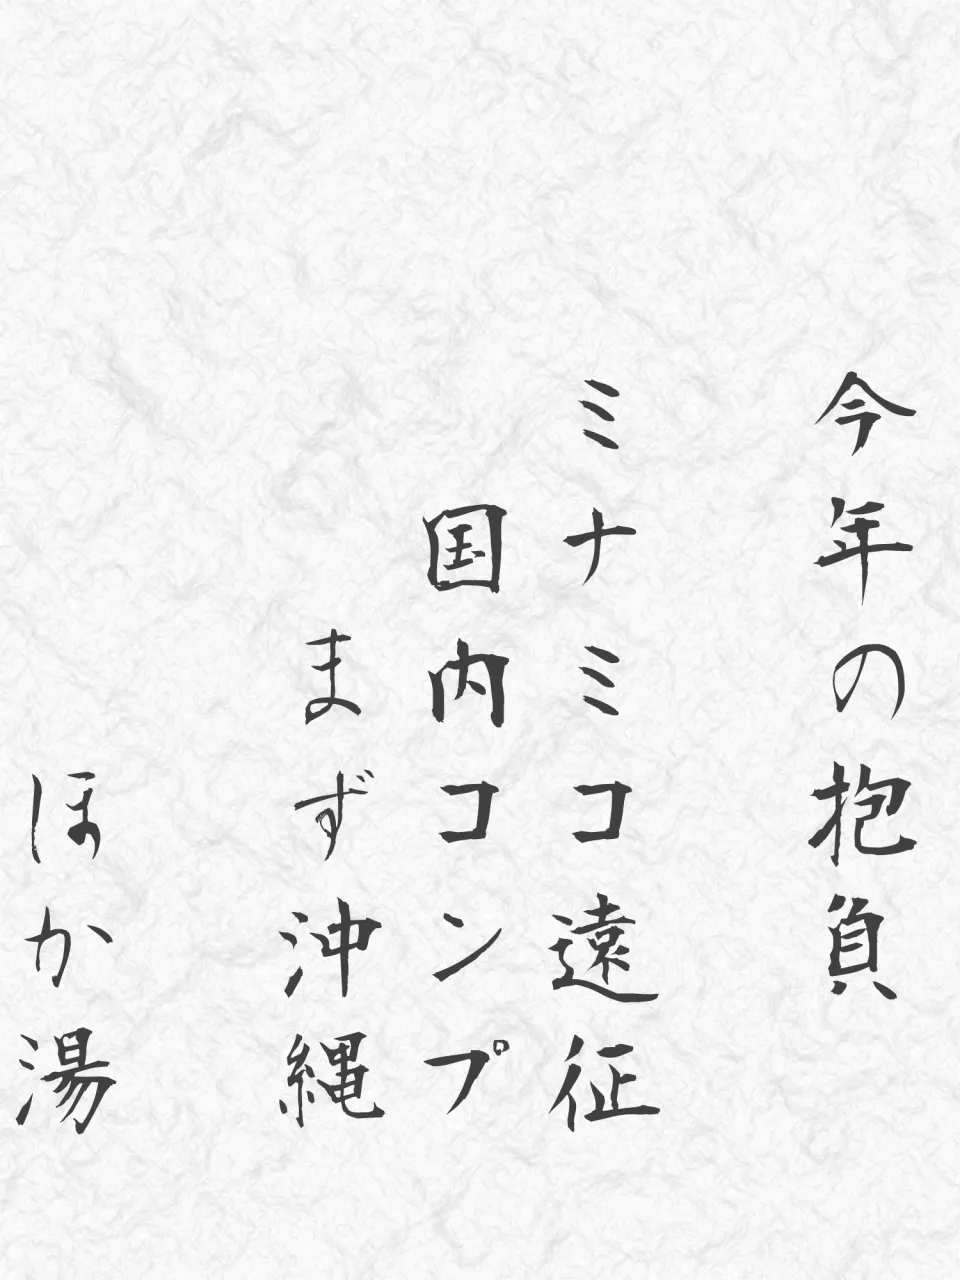 今年の抱負
ミナミコ遠征
国内コンプ
まず沖縄
ほか湯